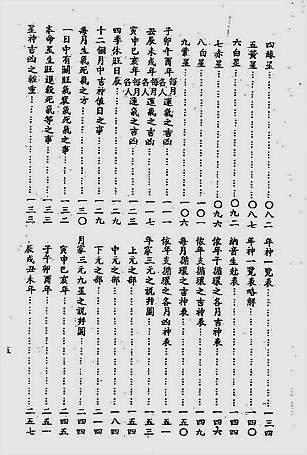 四綠星………○八二
五黃星………○八七
六白星………○九二
七赤星………○九六
八白星………一○一
九紫星………一○六
子卯午酉年每月每人運氣之吉凶………一一一
丑辰未戌年各月各人運氣之吉凶………一一七
寅申巳亥年各月各人運氣之吉凶………一二三
四季休旺日辰………一二九
十二個月中吉凶神值日之事………一二九
每月生氣死氣之方………一三○
一日中有關旺氣衰氣死氣之事………一三一
本命星生旺退殺死氣等之事………一三三
星神吉凶之輕重………一三三
年神一覽表………一三四
年神一覽表略解………一四○
納音生剋表………一四四
依年干循環之各月吉神表………一四六
依年支循環之吉神表………一四九
每月循環之吉神表………一五○
依年支循環之各月凶神表………一五一
年家三元之說幷圖………一五三
上元之部………一五四
中元之部………一八四
下元之部………二一四
月家三元九星之說幷圖………二四四
寅申巳亥年………二四五
子午卯酉年………二五一
辰戌丑未年………二五七
五